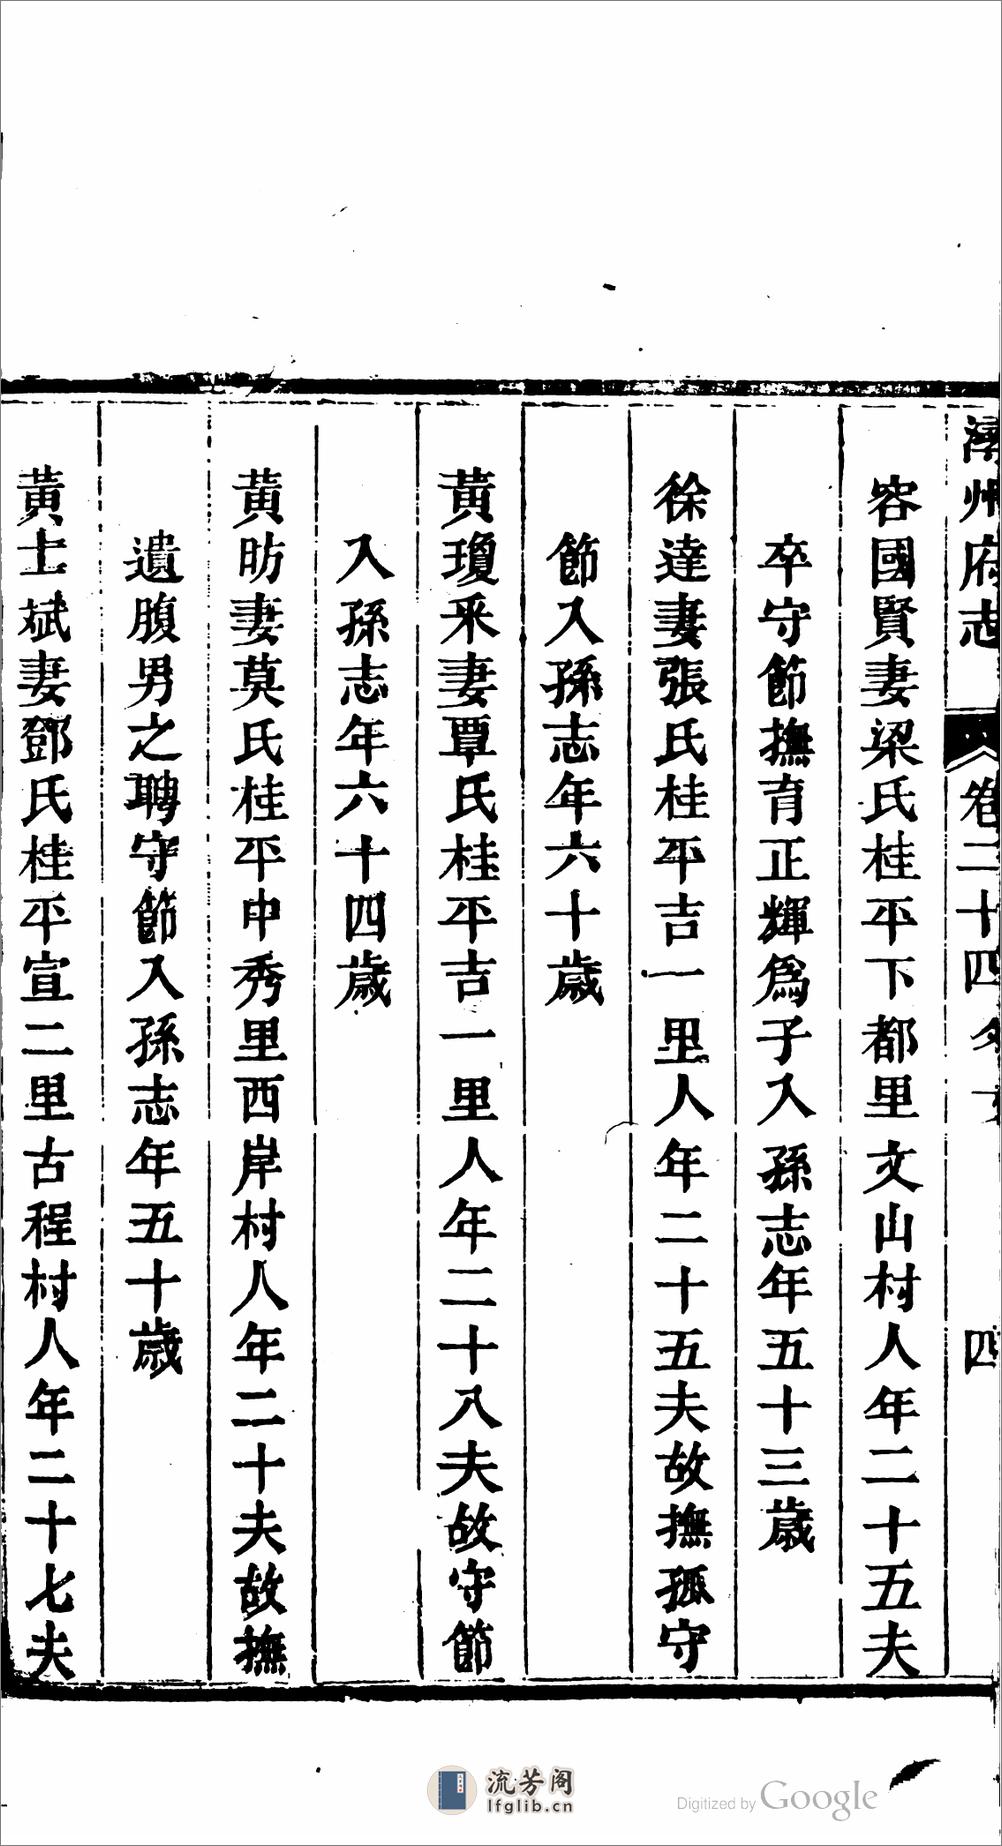 潯州府志 卷二十四 列女 四
容國賢妻梁氏桂平下都里文山村人年二十五夫
卒守節撫育正輝爲子入孫志年五十三歲
徐達妻張氏桂平吉一里人年二十五夫故撫孤守
節入孫志年六十歲
黃瓊釆妻覃氏桂平吉一里人年二十八夫故守節
入孫志年六十四歲
黃昉妻莫氏桂平中秀里西岸村人年二十夫故撫
遺腹男之聘守節入孫志年五十歲
黃士斌妻鄧氏桂平宣二里古程村人年二十七夫
流芳阁
lfglib.cn
Digitized by Google